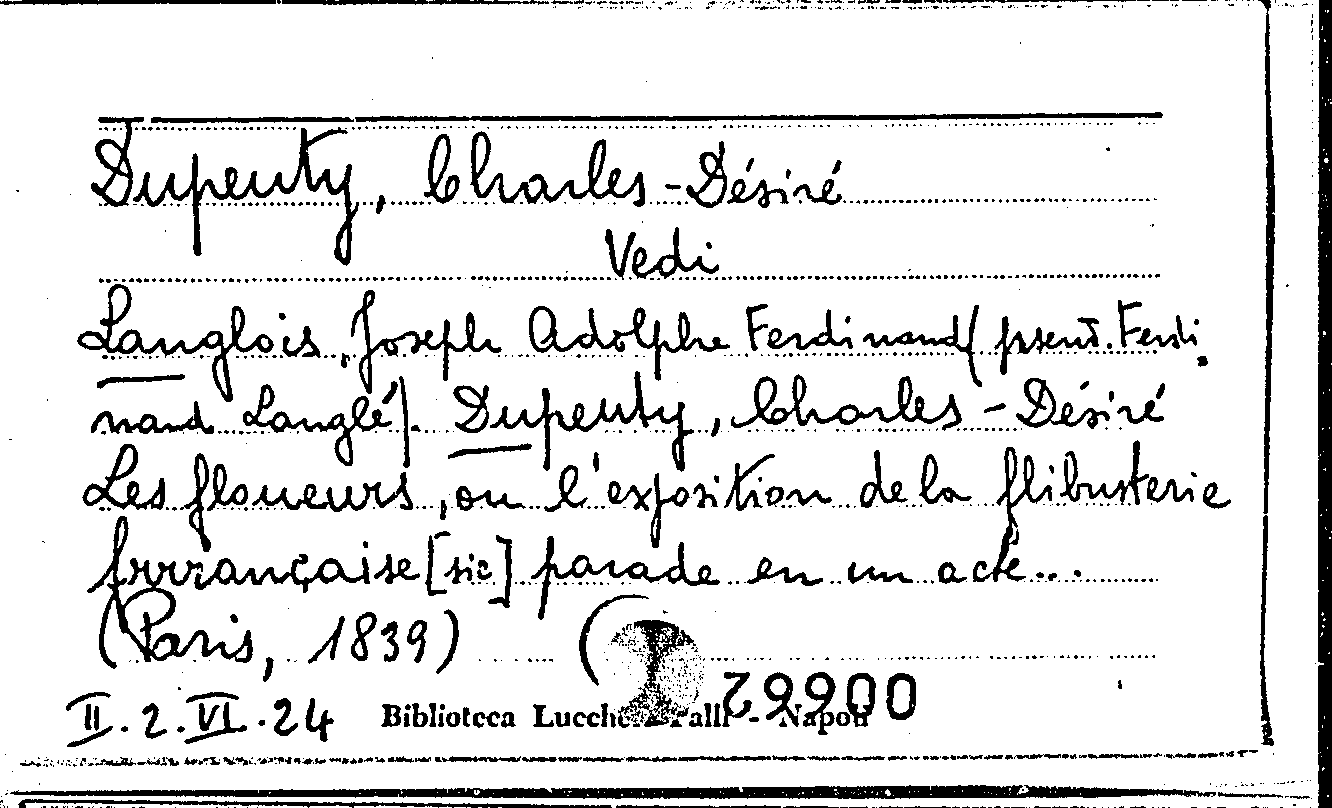 Dupeuty, Charles-Désiré
Vedi
Langlois, Joseph Adolphe Ferdinand (pseud. Ferdi
nand Langlé). Dupeuty, Charles-Désiré
Les floueurs, ou l'exposition de la flibusterie
frrrançaise [sic] parade en un acte...
(Paris, 1839) (
II.2.VI.24 Biblioteca Lucchesi Palli - Napoli